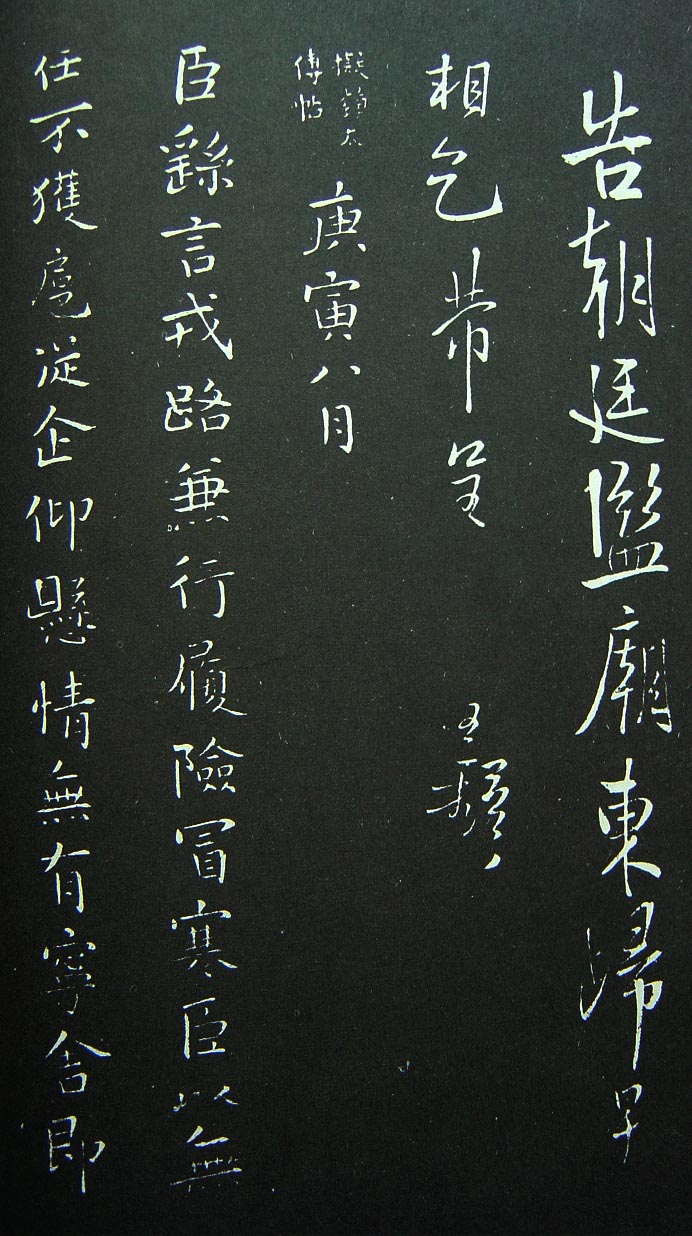 告朝廷監廟東歸早
相乞帶呈
擬鍾太
傅帖
庚寅八月
臣繇言戎路兼行履險冒寒臣以無
任不獲扈從企仰懸情無有寧舍即